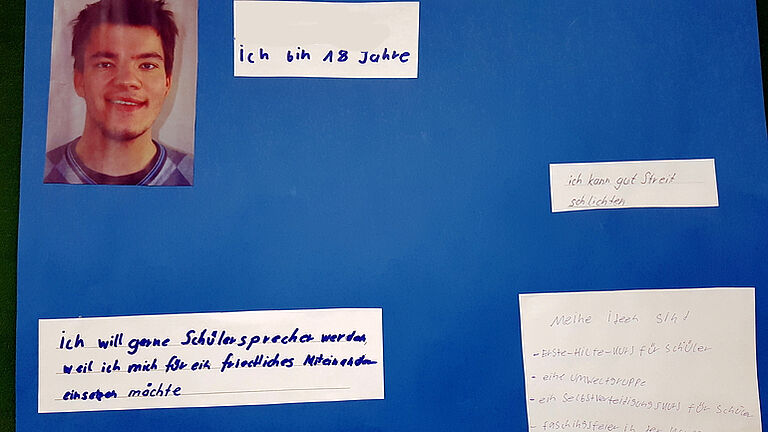 ich bin 18 Jahre
ich kann gut Streit
schlichten
ich will gerne Schülersprecher werden,
weil ich mich für ein friedliches Miteinander
einsetzen möchte
Meine Ideen sind
- Erste-Hilfe-Kurs für Schüler
- eine Umweltgruppe
- ein Selbstverteidigungskurs für Schüler
- Faschingsfeier in der